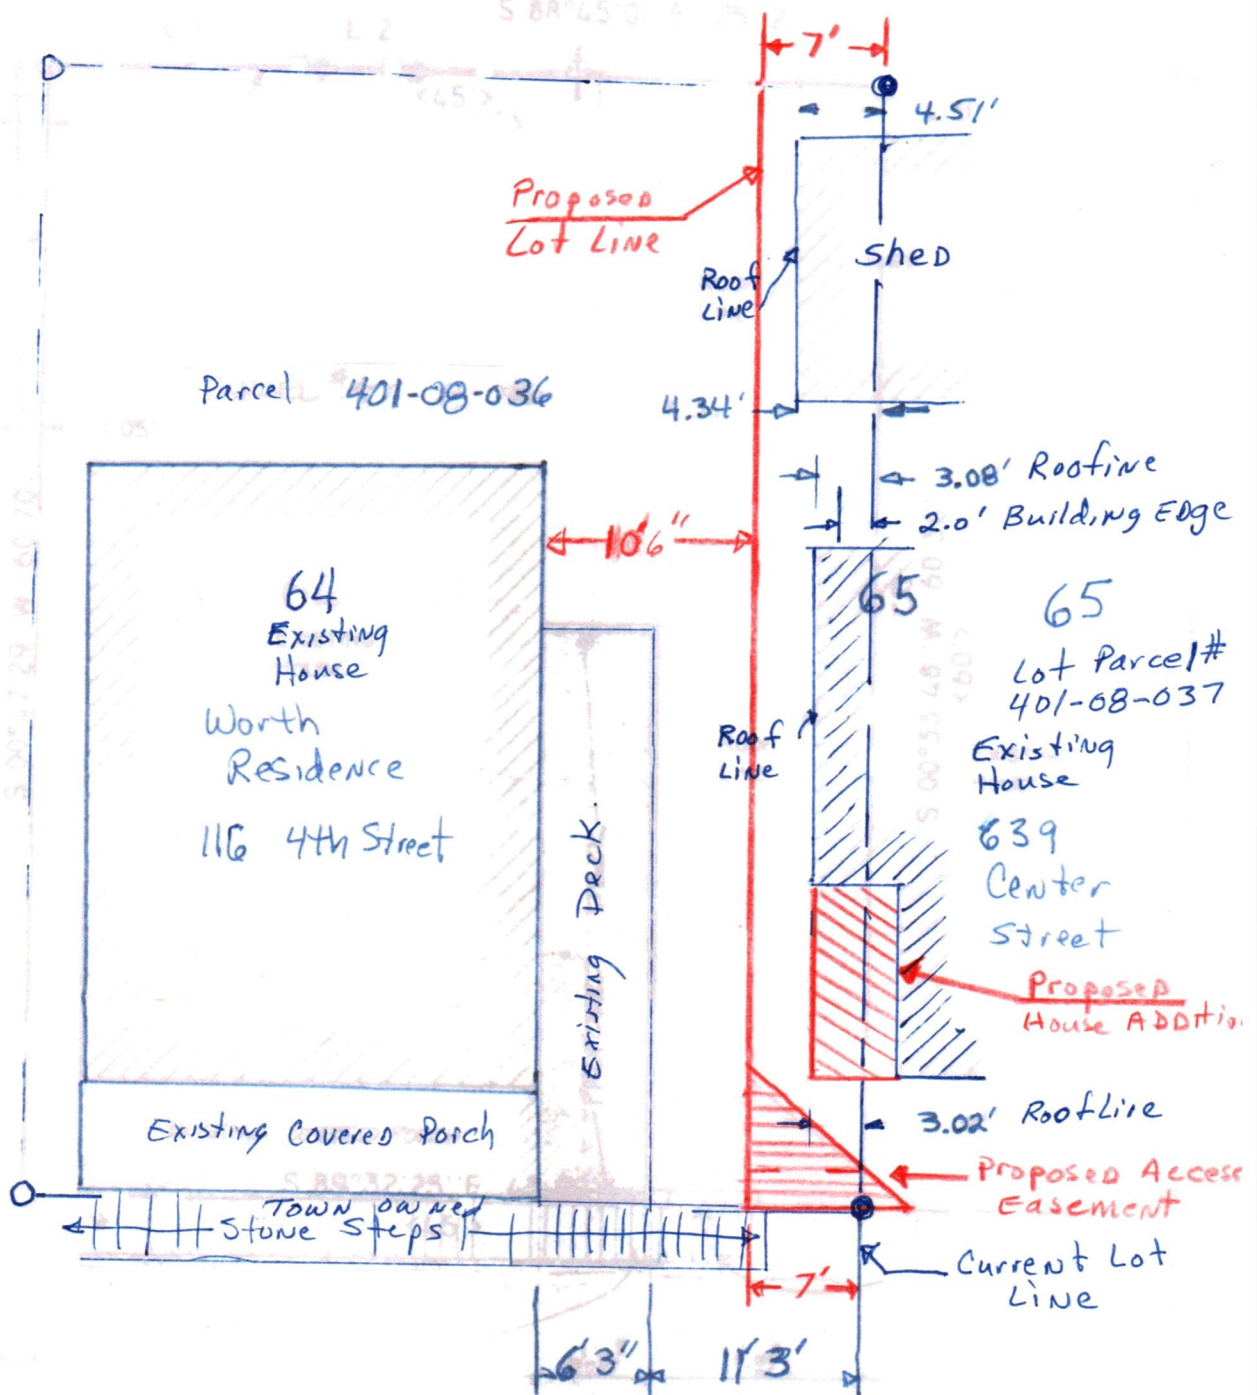 7'
4.51'
Proposed
Lot Line
Shed
Roof
Line
Parcel 401-08-036
4.34'
3.08' Roofine
2.0' Building Edge
10'6"
64
Existing
House
Worth
Residence
116 4th Street
65
65
Lot Parcel#
401-08-037
Existing
House
639
Center
Street
Roof
Line
Existing Deck
Proposed
House Additio
Existing Covered Porch
3.02' RoofLine
Proposed Access
Easement
Town owned
Stone Steps
Current Lot
Line
7'
6'3"
11'3'